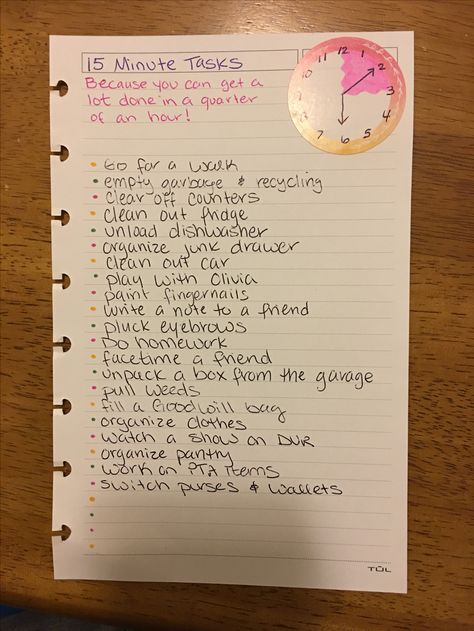 15 Minute Tasks
Because you can get a
lot done in a quarter
of an hour!
12
1
2
3
5
6
7
10
Go for a walk
empty garbage & recycling
clear off counters
clean out fridge
unload dishwasher
organize junk drawer
clean out car
play with Olivia
paint fingernails
write a note to a friend
pluck eyebrows
Do homework
facetime a friend
unpack a box from the garage
pull weeds
fill a Goodwill bag
organize clothes
watch a show on DVR
organize pantry
work on PTA items
switch purses & wallets
TUL